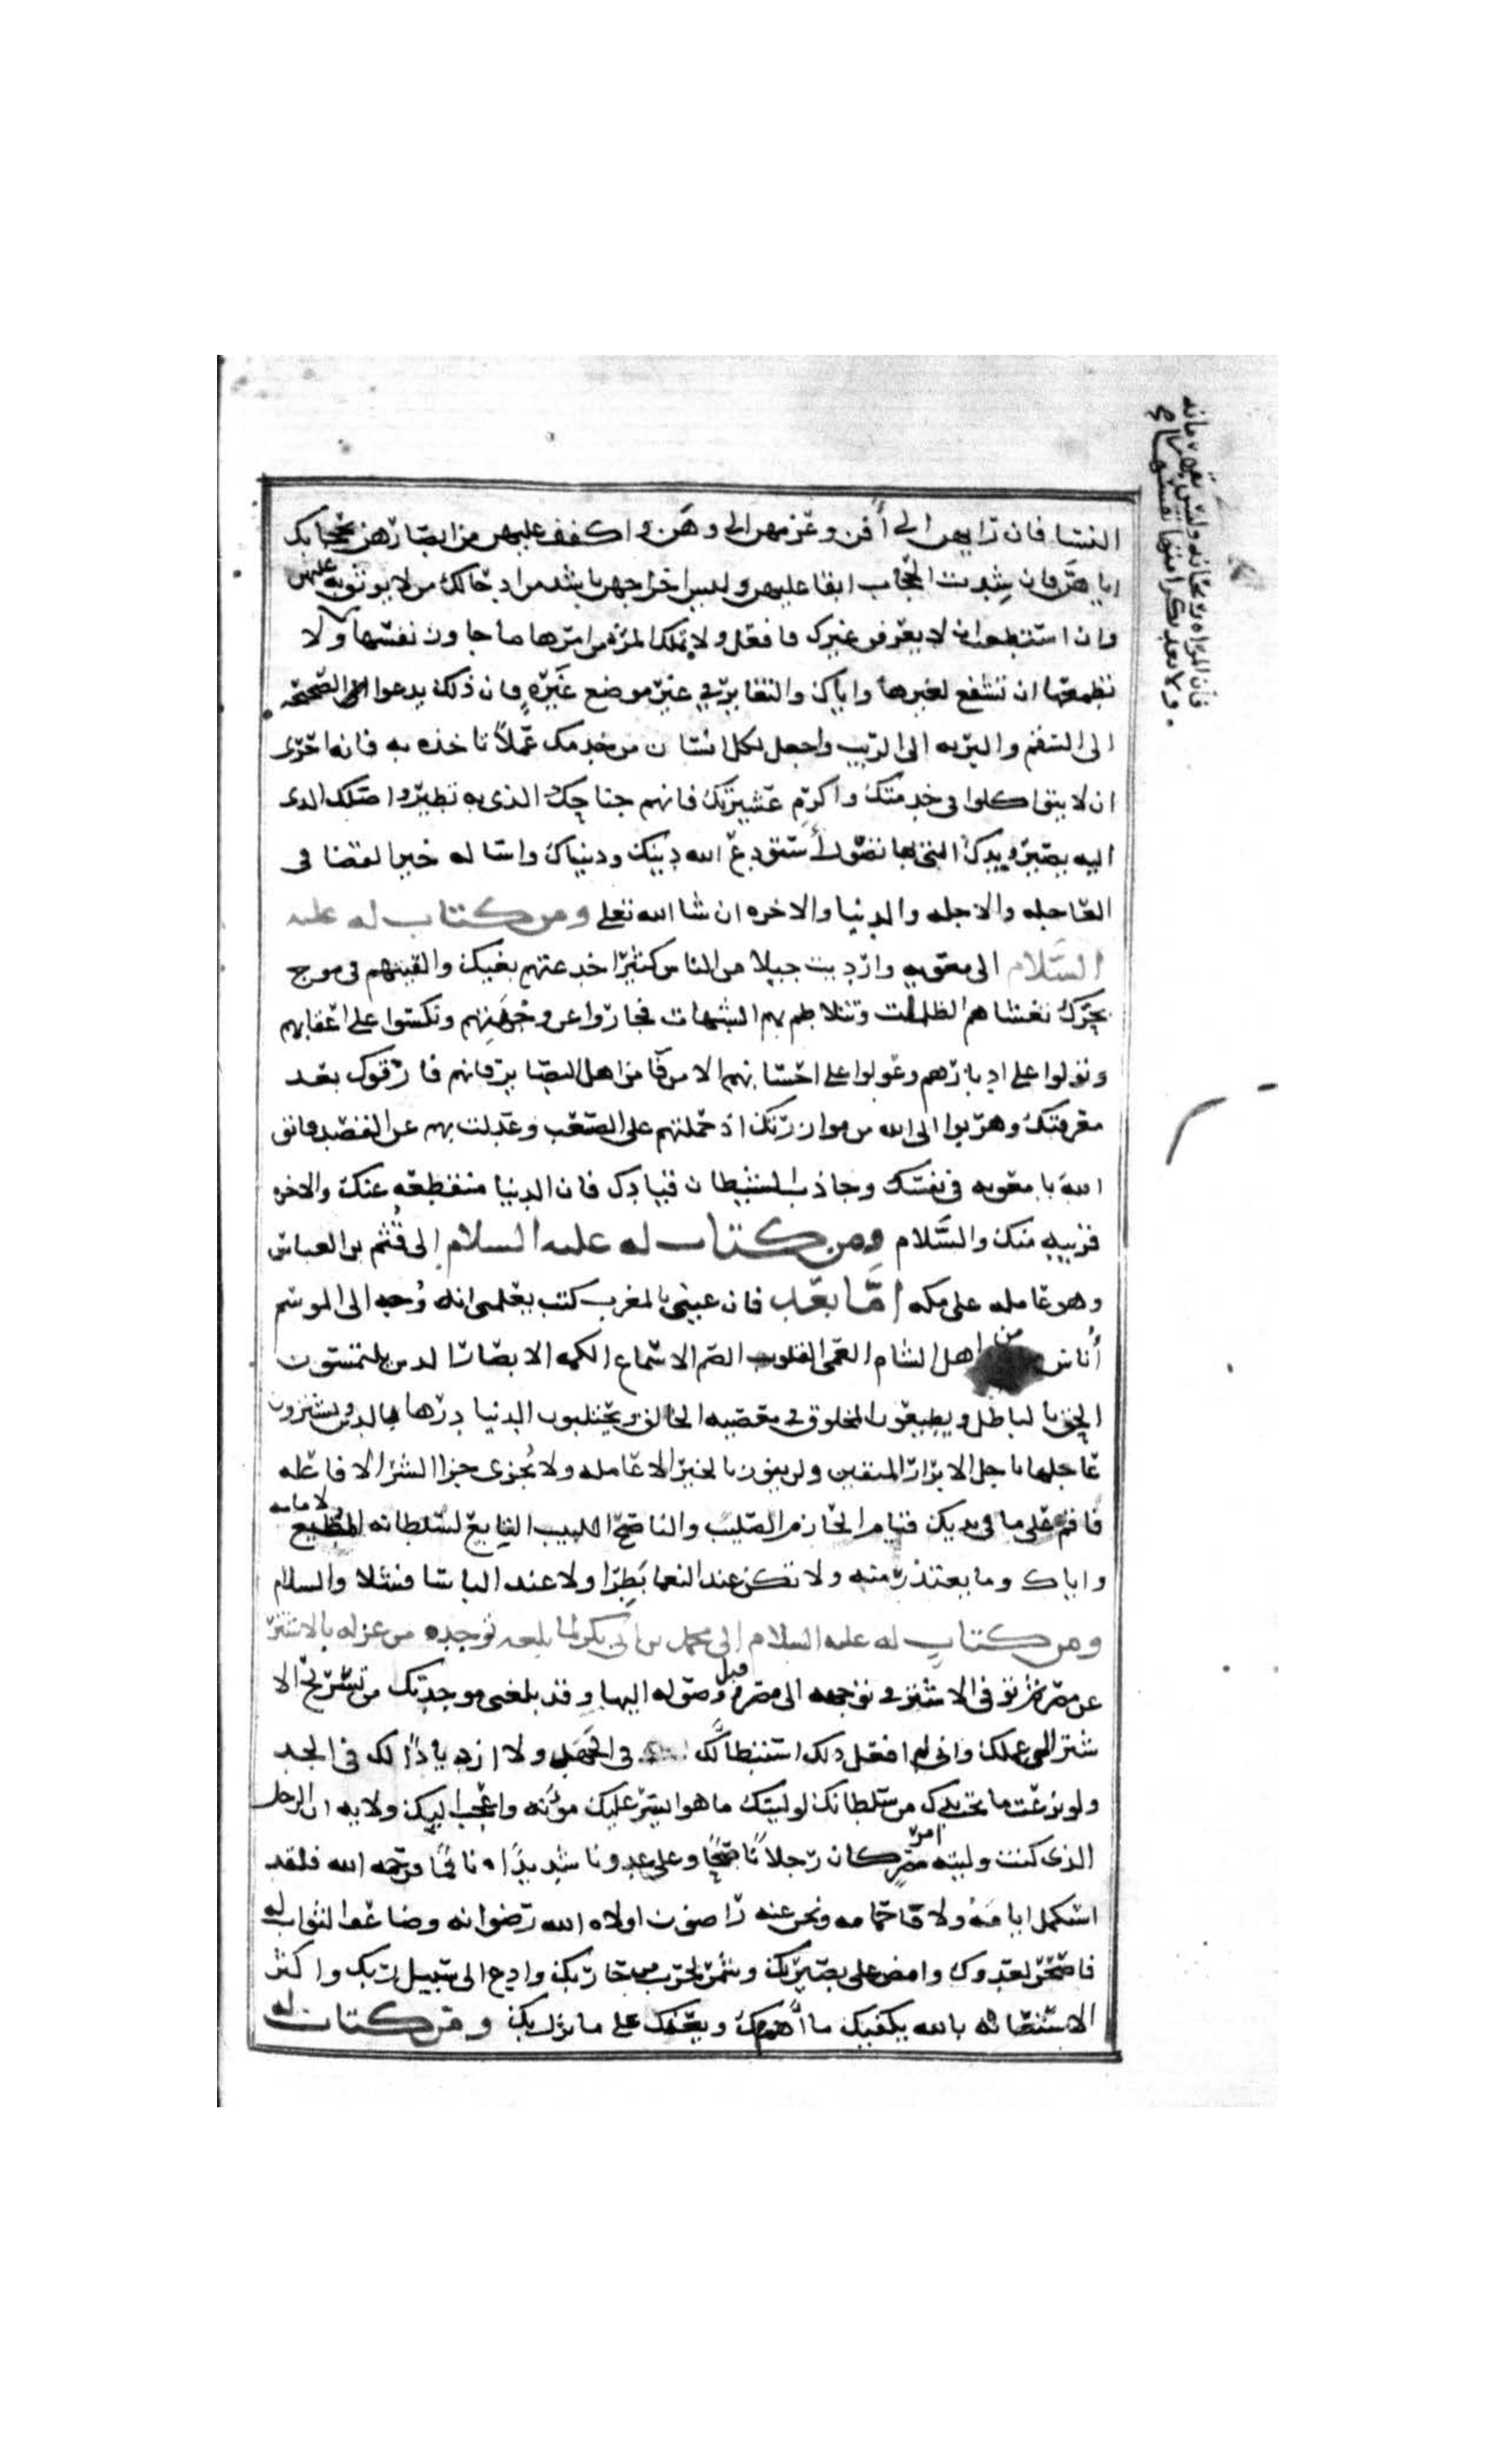 النسا فان رايهن الى أفن وعزمهن الى وهن واكفف عليهن من ابصارهن بحجابك
اياهن فان شدت الحجاب ابقا عليهن وليس اخراجهن باشد من ادخالك من لا يوثق به عليهن
وان استطعت ان لا يعرفن غيرك فافعل ولا تملك المرة من امرها ما جاوز نفسها ولا
تطمعها ان تشفع لغيرها واياك والتغاير في غير موضع غيرة فان ذلك يدعوا الصحيحه
الى السقم والبريه الى الريب واجعل لكل انسان من خدمك عملاً تاخذه به فانه احرى
ان لا يتواكلوا في خدمتك واكرم عشيرتك فانهم جناحك الذي به تطير واصلك الدى
اليه يصير ويدك التي بها تصول أستودع الله دينك ودنياك واساله خير القضا في
العاجله والاجله والدنيا والاخره ان شا الله تعلى ومن كتاب له عليه
السلام الى معويه وارديت جيلا من الناس كثيرا خدعتهم بغيك والقيتهم في موج
بحرك تغشاهم الظلمات وتتلاطم بهم الشبهات فجاروا عن وجهتهم ونكسوا على اعقابهم
وتولوا على ادبارهم وعولوا على احسابهم الا من فا من اهل البصاير فانهم فارقوك بعد
معرفتك وهربوا الى الله من موازرتك اذ حملتهم على الصعب وعدلت بهم عن القصد فاتق
الله يا معويه في نفسك وجاذب الشيطان قيادك فان الدنيا منقطعه عنك والاخره
قريبه منك والسَّلام ومن كتاب له عليه السلام الى قُثم بن العباس
وهو عامله على مكه أمّا بعد فان عيني بالمغرب كتب يعلمني انه وُجه الى الموسم
أناس من اهل الشام العمى القلوب الصم الاسماع الكمه الابصار الدىن يلتمسون
الحق بالباطل ويطيعون المخلوق في معصيه الخالق ويحتلبون الدنيا درها بالدىن ويشترون
عاجلها باجل الابرار المتقين ولن يفوز بالخير الا عامله ولا يُجزى جزا الشر الا فاعله
فاقم على ما في يديك قيام الحازم الصليب والناصح اللبيب التابع لسلطانه المطيع لامامه
واياك وما يعتذر منه ولا تكن عند النعما بَطِرًا ولا عند الباسا فشلا والسلام
ومن كتاب له عليه السلام الى محمد بن ابى بكر لما بلغه توجده من عزله بالاشتر
عن مصر ثم توفى الاشتر في توجهه الى مصر قبل وصوله اليها وقد بلغني موجدتك من تسريح الا
شتر الى عملك وانى لم افعل ذلك استبطاً لك في الجهد ولا ازدياداً لك في الجد
ولو نزعت ما تحت يدك من سلطانك لوليتك ما هو ايسر عليك مؤنه واعجب اليك ولايه ان الرجل
الذى كنت وليته امر مصر كان رجلاً ناصحًا وعلى عدونا شديدًا ناقمًا فرحمه الله فلقد
استكمل ايامه ولاقا حمامه ونحن عنه راضون اولاه الله رضوانه وضاعف الثواب له
فاصحر لعدوك وامض على بصيرتك وشمر لحرب من حاربك وادع الى سبيل ربك واكثر
الاستعانه بالله يكفيك ما أهمك ويعنك على ما نزل بك ومن كتاب له
فان المراه ريحانه وليس بقهرمانه
ولا تعد بكرامتها نفسها صح